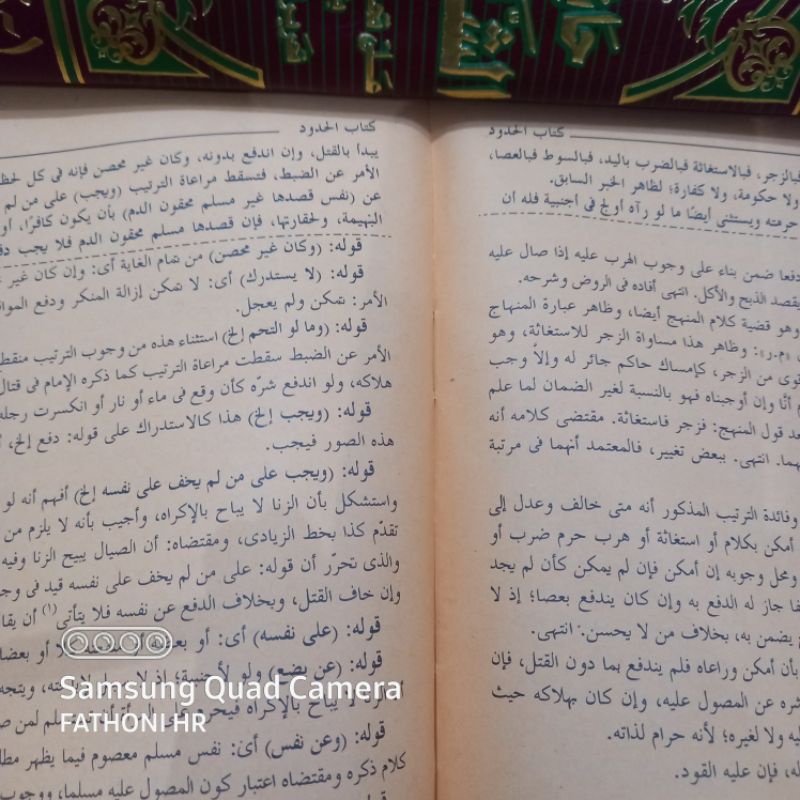 كتاب الحدود
فبالزجر، فبالاستغاثة فبالضرب باليد، فبالسوط فبالعصا،
ولا حكومة، ولا كفارة؛ لظاهر الخبر السابق.
حرمته ويستثنى أيضًا ما لو رآه أولج فى أجنبية فله أن
دفعا ضمن بناء على وجوب الهرب عليه إذا صال عليه
بقصد الذبح والأكل. انتهى أفاده فى الروض وشرحه.
وهو قضية كلام المنهج أيضا، وظاهر عبارة المنهاج
«م.ر»: وظاهر هذا مساواة الزجر للاستغاثة، وهو
قوى من الزجر، كإمساك حاكم جائر له وإلاّ وجب
أنّا وإن أوجبناه فهو بالنسبة لغير الضمان لما علم
بعد قول المنهج: فزجر فاستغاثة. مقتضى كلامه أنه
هما. انتهى. ببعض تغيير، فالمعتمد أنهما فى مرتبة
وفائدة الترتيب المذكور أنه متى خالف وعدل إلى
أمكن بكلام أو استغاثة أو هرب حرم ضرب أو
ومحل وجوبه إن أمكن فإن لم يمكن كأن لم يجد
فا جاز له الدفع به وإن كان يندفع بعصا؛ إذ لا
يضمن به، بخلاف من لا يحسن. انتهى.
بأن أمكن وراعاه فلم يندفع بما دون القتل، فإن
شره عن المصول عليه، وإن كان بهلاكه حيث
ليه ولا لغيره؛ لأنه حرام لذاته.
له، فإن عليه القود.
كتاب الحدود
يبدأ بالقتل، وإن اندفع بدونه، وكان غير محصن فإنه فى كل لحظ
الأمر عن الضبط، فتسقط مراعاة الترتيب (ويجب) على من لم
عن (نفس قصدها غير مسلم محقون الدم) بأن يكون كافرًا، أو
البهيمة، ولحقارتها، فإن قصدها مسلم محقون الدم فلا يجب دف
قوله: (وكان غير محصن) من تمام الغاية أى: وإن كان غير
قوله: (لا يستدرك) أى: لا تمكن إزالة المنكر ودفع الموا
الأمر: تمكن ولم يعجل.
قوله: (وما لو التحم إلخ) استثناء هذه من وجوب الترتيب منقط
الأمر عن الضبط سقطت مراعاة الترتيب كما ذكره الإمام فى قتال
هلاكه، ولو اندفع شرّه كأن وقع فى ماء أو نار أو انكسرت رجله
قوله: (ويجب إلخ) هذا كالاستدراك على قوله: دفع إلخ،
هذه الصور فيجب.
قوله: (ويجب على من لم يخف على نفسه إلخ) أفهم أنه لو
واستشكل بأن الزنا لا يباح بالإكراه، وأجيب بأنه لا يلزم من
تقدّم كذا بخط الزيادى، ومقتضاه: أن الصيال يبيح الزنا وفيه
والذى تحرّر أن قوله: على من لم يخف على نفسه قيد فى وج
وإن خاف القتل، وبخلاف الدفع عن نفسه فلا يتأتى(١) أن يقا
قوله: (على نفسه) أى: أو أو بعضا
قوله: (عن بضع) ولو لأجنبية؛ ويتجه
لا يباح بالإكراه فيحرم لمن
قوله: (وعن نفس) أى: نفس مسلم معصوم فيما يظهر
كلام ذكره ومقتضاه اعتبار كون المصول عليه مسلما، ووجوب
Samsung Quad Camera
FATHONI HR